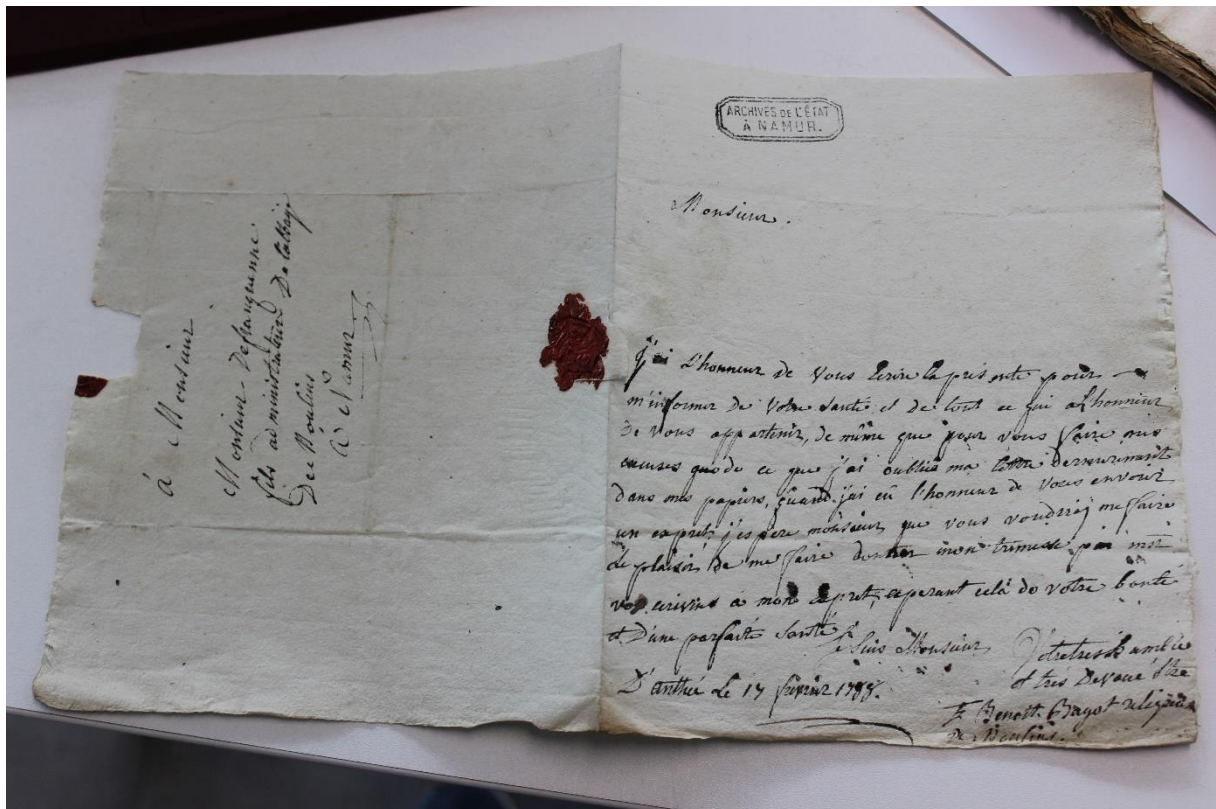 à Monsieur
Monsieur Defranquenne
fils administrateur De labbaÿe
De Moulins
à Namur
ARCHIVES DE L'ÉTAT
À NAMUR.
Monsieur.
j'ai l'honneur de vous Ecrire la presente pour
m'informer de votre santé et de tout ce qui a l'honneur
De vous appartenir, de même que pour vous faire mes
excuses de ce que j'ai oubliée ma lettre
dans mes papiers, quand j'ai eû l'honneur de vous envoier
un exprèt, j'espere monsieur que vous voudrez me faire
Le plaisir de me faire donner mon trimestre par
vos a mon exprèt, esperant celà de votre bonté
et D'une parfaite santé je suis Monsieur Votre tres humble
et très Devoué
D'anthée Le 17 fevrier 1788.
f. Benoit Bagot religieux
De Moulins.